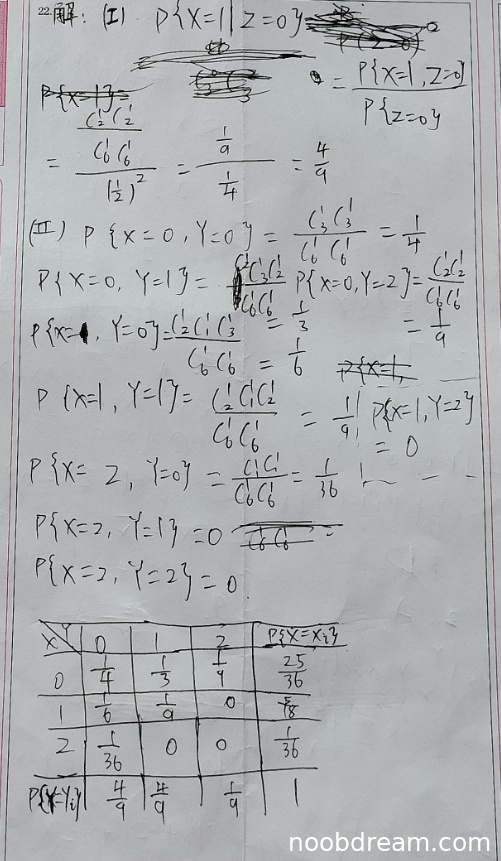 22.解: (I) P{X=1|Z=0}
= P{X=1, Z=0} / P{Z=0}
= (C₂¹C₂¹ / C₆¹C₆¹) / (1/2)² = (1/9) / (1/4) = 4/9
(II) P{X=0, Y=0} = C₃¹C₃¹ / C₆¹C₆¹ = 1/4
P{X=0, Y=1} = C₂¹C₃¹C₂¹ / C₆¹C₆¹ = 1/3 P{X=0, Y=2} = C₂¹C₂¹ / C₆¹C₆¹ = 1/9
P{X=1, Y=0} = C₂¹C₁¹C₃¹ / C₆¹C₆¹ = 1/6
P{X=1, Y=1} = C₂¹C₁¹C₂¹ / C₆¹C₆¹ = 1/9 P{X=1, Y=2} = 0
P{X=2, Y=0} = C₁¹C₁¹ / C₆¹C₆¹ = 1/36
P{X=2, Y=1} = 0
P{X=2, Y=2} = 0.
X Y 0 1 2 P{X=Xi}
0 1/4 1/3 1/9 25/36
1 1/6 1/9 0 5/18
2 1/36 0 0 1/36
P{Y=Yi} 4/9 4/9 1/9 1
noobdream.com